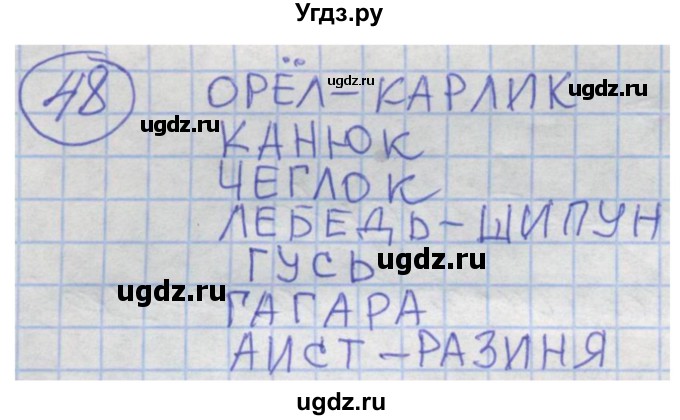 Угдз.ру
48 ОРЁЛ-КАРЛИК
ugdz.ru
ugdz.ru
ugdz.ru
КАНЮК
ЧЕГЛОК
ЛЕБЕДЬ-ШИПУН
ГУСЬ
ugdz.ru
ugdz.ru
ГАГАРА
АИСТ-РАЗИНЯ
ugdz.ru